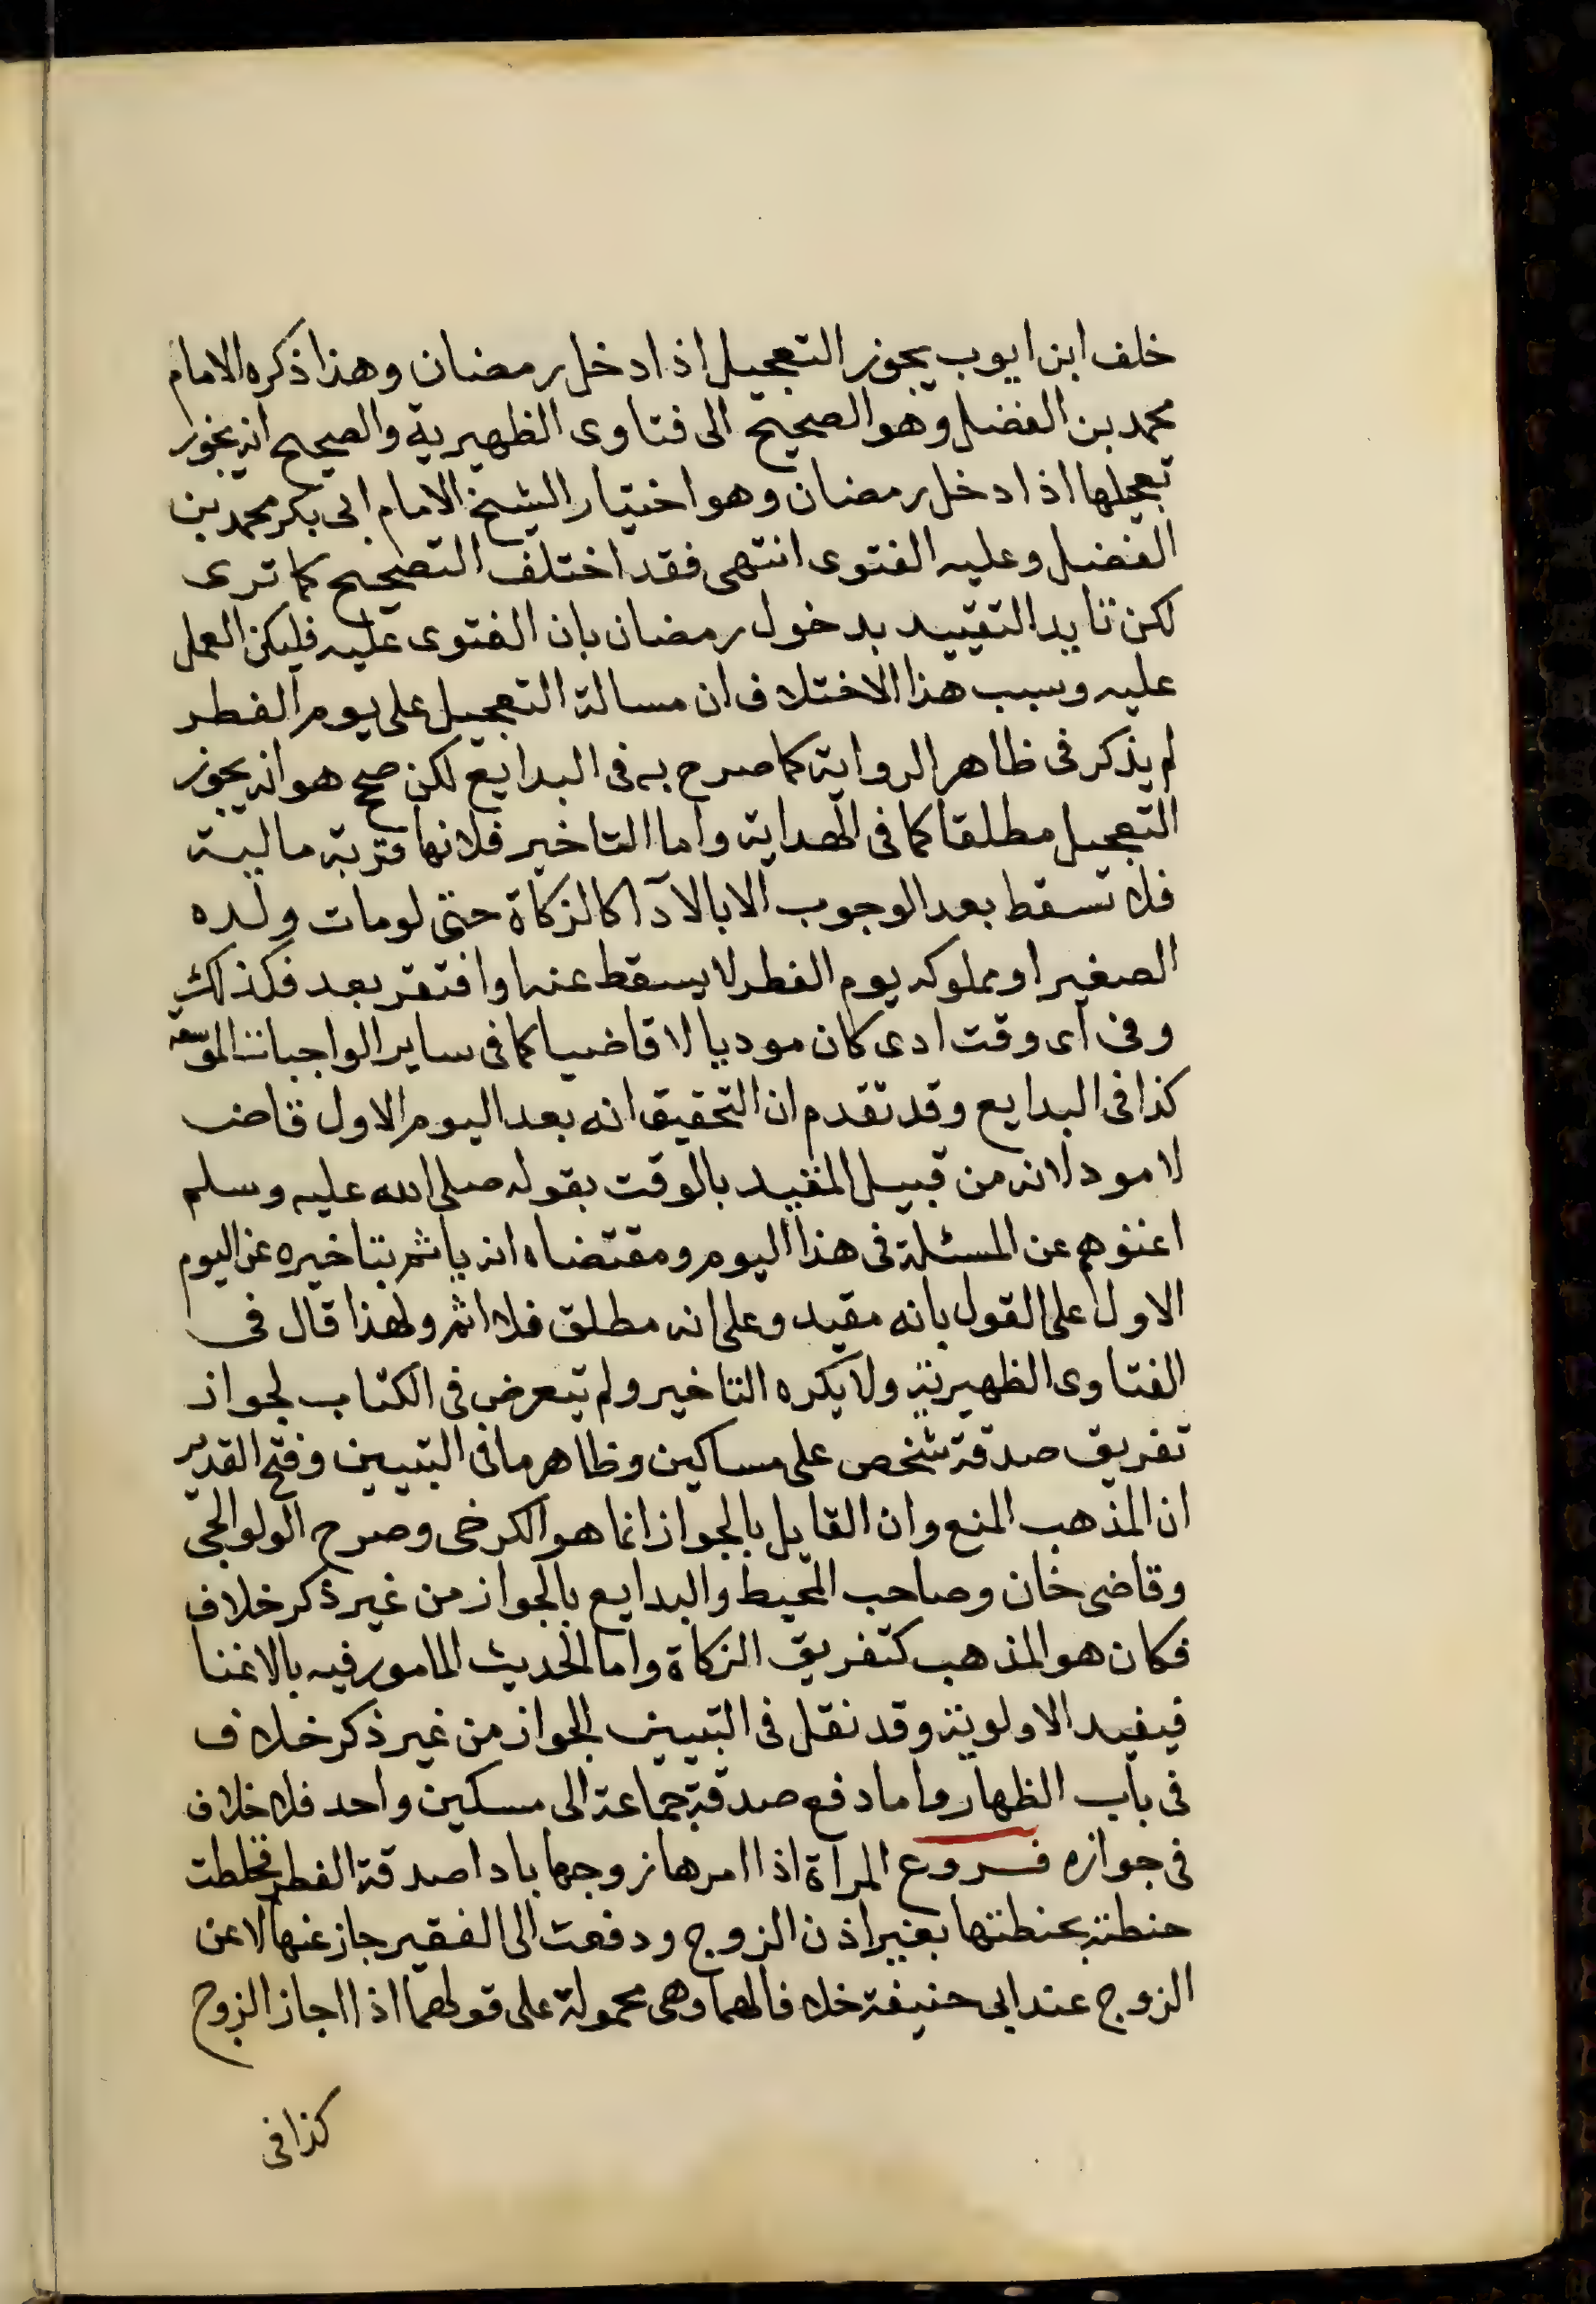 خلف ابن ايوب يجوز التعجيل اذا دخل رمضان وهذا ذكره الامام
محمد بن الفضل وهو الصحيح الى فتاوى الظهيرية والصحيح انه يجوز
تعجيلها اذا دخل رمضان وهو اختيار الشيخ الامام ابى بكر محمد بن
الفضل وعليه الفتوى انتهى فقد اختلف التصحيح كما ترى
لكن تايد التقييد بدخول رمضان بان الفتوى عليه فليكن العمل
عليه وسبب هذا الاختلاف ان مسالة التعجيل على يوم الفطر
لم يذكر فى ظاهر الرواية كما صرح به فى البدايع لكن صحح هو انه يجوز
التعجيل مطلقا كما فى الهداية واما التاخير فلانها قربة مالية
فلا تسقط بعد الوجوب الا بالادآ كالزكاة حتى لو مات ولده
الصغير او مملوكه يوم الفطر لا يسقط عنه او افتقر بعد فكذلك
وفى اى وقت ادى كان موديا لا قاضيا كما فى ساير الواجبات الموسعة
كذا فى البدايع وقد تقدم ان التحقيق انه بعد اليوم الاول قاض
لا مود لانه من قبيل المقيد بالوقت بقوله صلى الله عليه وسلم
اغنوهم عن المسئلة فى هذا اليوم ومقتضاه انه ياثم بتاخيره عن اليوم
الاول على القول بانه مقيد وعلى انه مطلق فلا اثم ولهذا قال فى
الفتاوى الظهيرية ولا يكره التاخير ولم يتعرض فى الكتاب لجواز
تفريق صدقة شخص على مساكين وظاهر ما فى التبيين وفتح القدير
ان المذهب المنع وان القايل بالجواز انما هو الكرخى وصرح الولوالجى
وقاضى خان وصاحب المحيط والبدايع بالجواز من غير ذكر خلاف
فكان هو المذهب كتفريق الزكاة واما الحديث المامور فيه بالاغنا
فيفيد الاولوية وقد نقل فى التبيين الجواز من غير ذكر خلاف
فى باب الظهار واما دفع صدقة جماعة الى مسكين واحد فلا خلاف
فى جوازه فروع المراة اذا امرها زوجها باداصدقة الفطر فخلطت
حنطته بحنطتها بغير اذن الزوج ودفعت الى الفقير جاز عنها لا عن
الزوج عند ابى حنيفة خلافا لهما وهى محمولة على قولهما اذا اجاز الزوج
كذا فى